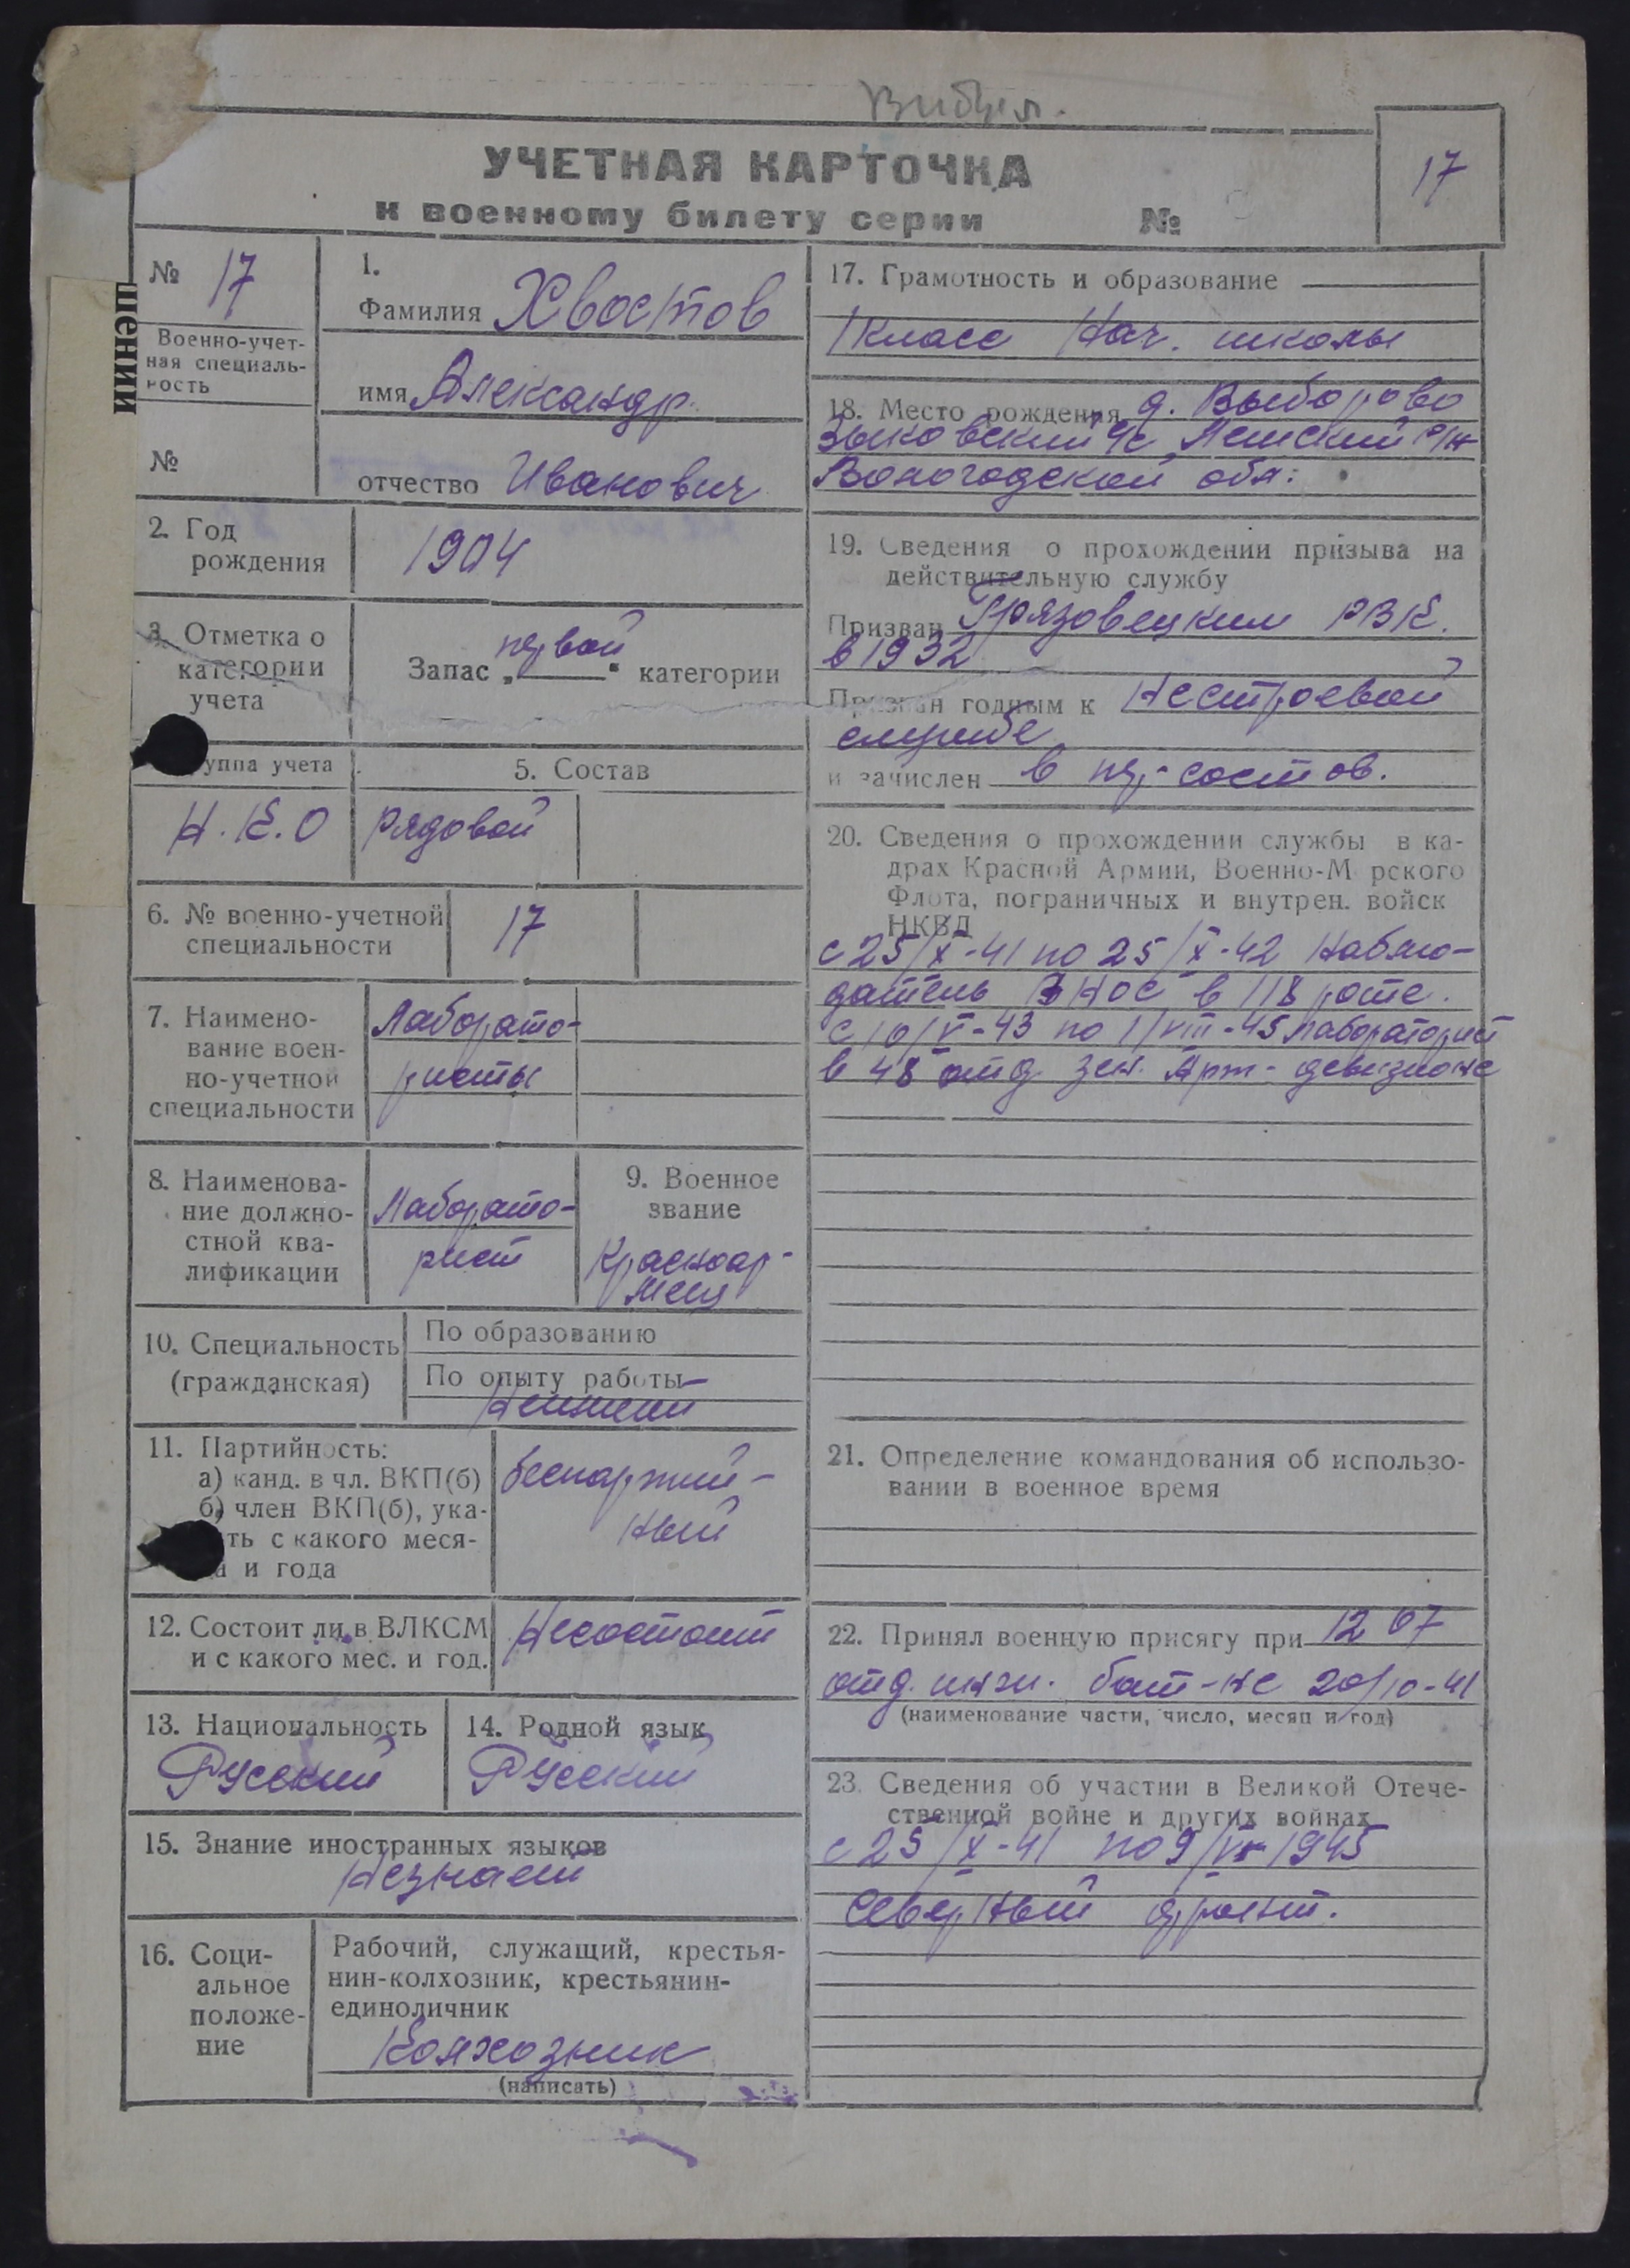 Выбыл.
УЧЕТНАЯ КАРТОЧКА
к военному билету серии №
17
№ 17
Военно-учет-
ная специаль-
ность
№
шении
1.
Фамилия Хвостов
имя Александр
отчество Иванович
2. Год
рождения
1904
3. Отметка о
категории
учета
Запас „первой“ категории
уппа учета
Н.К.О
5. Состав
рядовой
6. № военно-учетной
специальности
17
7. Наимено-
вание воен-
но-учетной
специальности
Лаборато-
ристы
8. Наименова-
ние должно-
стной ква-
лификации
Лаборато-
рист
9. Военное
звание
Красноар-
меец
10. Специальность
(гражданская)
По образованию
По опыту работы
Неимеет
11. Партийность:
а) канд. в чл. ВКП(б)
б) член ВКП(б), ука-
ть с какого меся-
ца и года
беспартий-
ный
12. Состоит ли в ВЛКСМ
и с какого мес. и год.
Несостоит
13. Национальность
Русский
14. Родной язык
Русский
15. Знание иностранных языков
Незнает
16. Соци-
альное
положе-
ние
Рабочий, служащий, крестья-
нин-колхозник, крестьянин-
единоличник
Колхозник
(написать)
17. Грамотность и образование
1 класс Нач. школы
18. Место рождения д. Выборово
Зыковский с/с Лешский р/н
Вологодской обл:
19. Сведения о прохождении призыва на
действительную службу
Призван Грязовецким РВК.
в 1932
Признан годным к Нестроевой
службе
и зачислен в пер. состав.
20. Сведения о прохождении службы в ка-
драх Красной Армии, Военно-М рского
Флота, пограничных и внутрен. войск
НКВД
с 25/X-41 по 25/X-42 Наблю-
датель ВНОС в 118 роте.
с 10/V-43 по 1/VIII-45 лабораторист
в 48 отд. зен. Арт-дивизионе
21. Определение командования об использо-
вании в военное время
22. Принял военную присягу при 12 07
отд. инжи. бат-не 20/10-41
(наименование части, число, месяц и год)
23. Сведения об участии в Великой Отече-
ственной войне и других войнах
с 25/X-41 по 9/V-1945
Северный фронт.